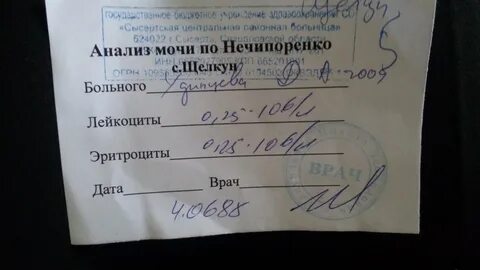 Щелкун
Государственное бюджетное учреждение здравоохранения СО
«Сысертская центральная районная больница»
624022 г. Сысерть, Свердловской области
Анализ мочи по Нечипоренко
с.Щелкун
Больного Удинцева Д А 2009
Лейкоциты 0,25·10 6/л
Эритроциты 0,25·10 6/л
Дата Врач
ВРАЧ
4.0688